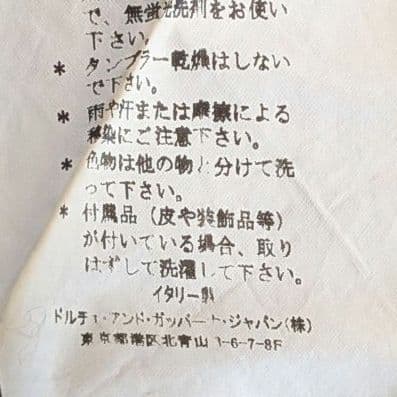 で、無蛍光洗剤をお使い
下さい。
* タンブラー乾燥はしない
で下さい。
* 雨や汗または摩擦による
移染にご注意下さい。
* 色物は他の物と分けて洗
って下さい。
* 付属品（皮や装飾品等）
が付いている場合、取り
はずして洗濯して下さい。
イタリー製
ドルチェ・アンド・ガッバーナ・ジャパン（株）
東京都港区北青山 -6-7-8F